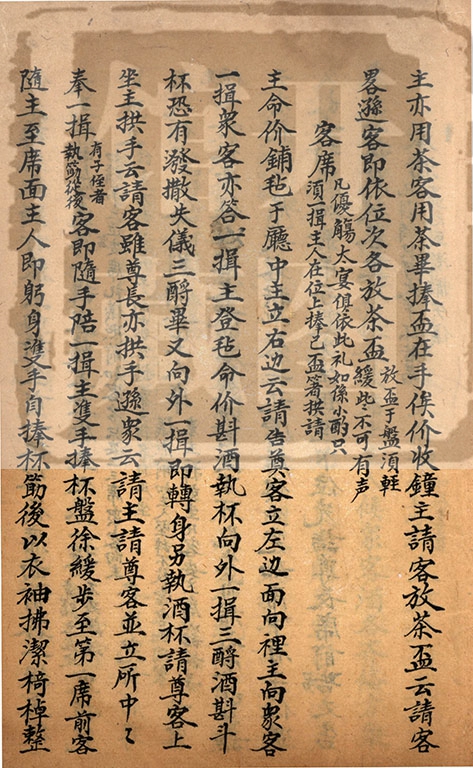 主亦用茶客用茶畢捧盃在手俟价收鐘主請客放茶盃云請客
畧遜客即依位次各放茶盃放盃于盤湏輕緩些不可有声
客席凡優觴大宴俱依此礼如係小酌只湏揖主人在位上捧己盃箸拱請
主命价鋪毡于廳中主立右边云請告奠客立左边面向裡主向衆客
一揖衆客亦答一揖主登毡命价斟酒執杯向外一揖三酹酒斟斗
杯恐有潑撒失儀三酹畢又向外一揖即轉身另執酒杯請尊客上
坐主拱手云請客雖尊長亦拱手遜衆云請主請尊客並立所中〻
奉一揖有子侄者執箸從後客即隨手陪一揖主雙手捧杯盤徐緩步至第一席前客
隨主至席面主人即躬身雙手自捧杯筯後以衣袖拂潔椅棹整